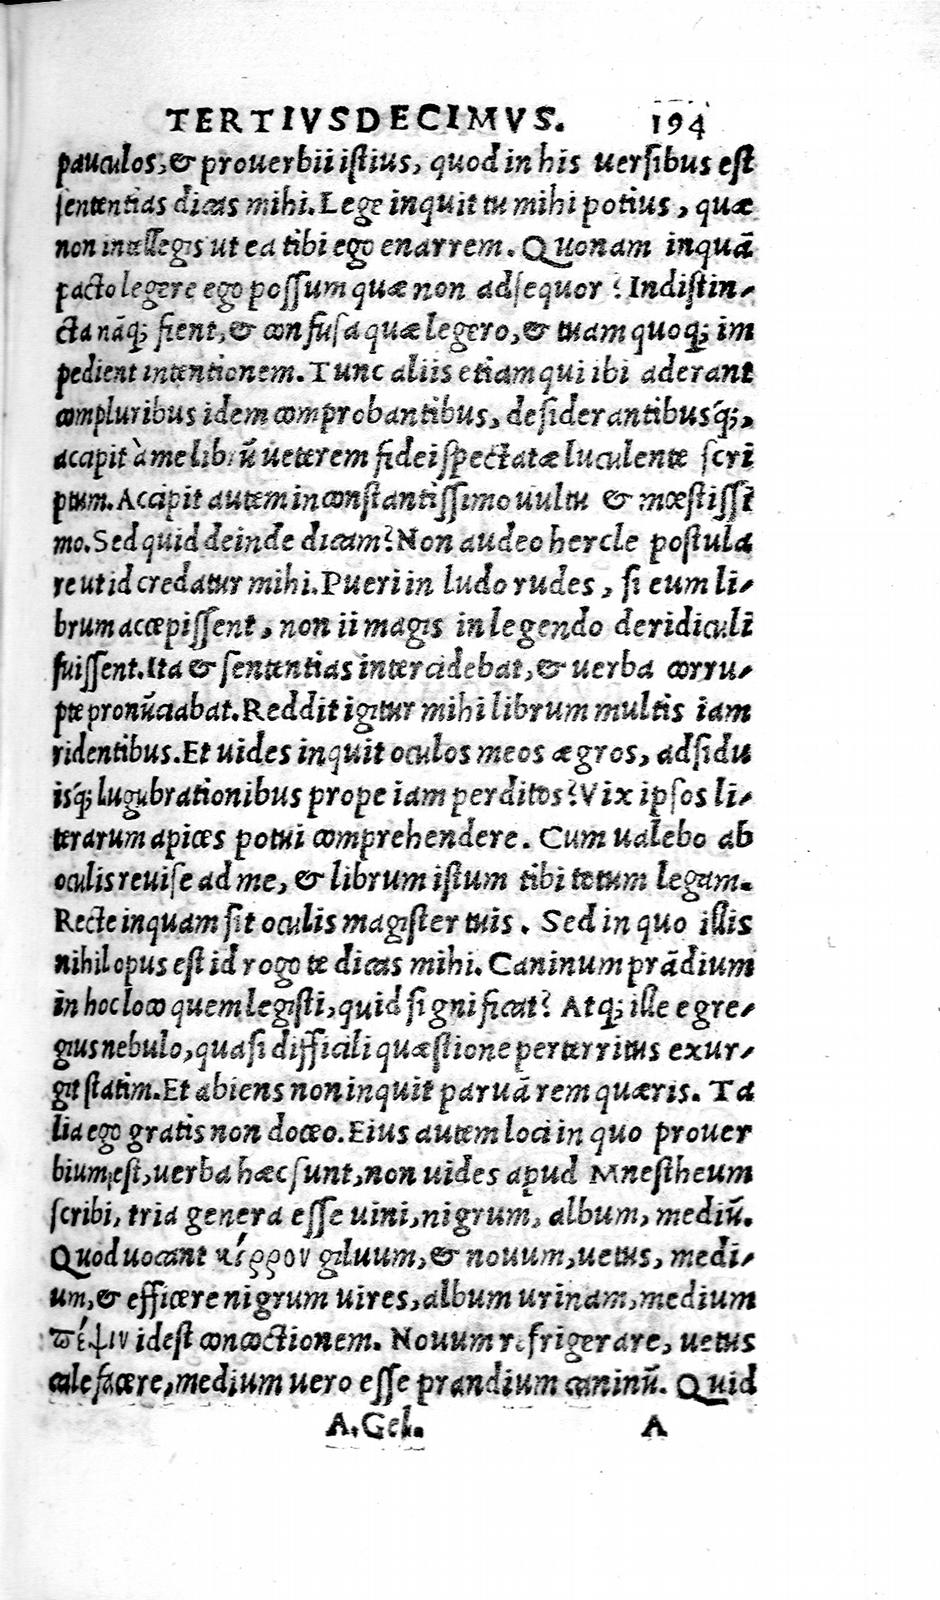 TERTIVSDECIMVS. 194
pauculos, & prouerbii istius, quod in his uersibus est
sententias dicas mihi. Lege inquit tu mihi potius, quæ
non intellegis ut ea tibi ego enarrem. Quonam inquā
pacto legere ego possum quæ non adsequor? Indistin-
cta nāq; fient, & confusa quæ legero, & tuam quoq; im
pedient intentionem. Tunc aliis etiam qui ibi aderant
compluribus idem comprobantibus, desiderantibusq́;,
accipit à me librū ueterem fidei spectatæ luculente scri
ptum. Accipit autem inconstantissimo uultu & mœstissi
mo. Sed quid deinde dicam? Non audeo hercle postula
re ut id credatur mihi. Pueri in ludo rudes, si eum li-
brum accœpissent, non ii magis in legendo deridiculi
fuissent. Ita & sententias intercidebat, & uerba corru-
pte pronūciabat. Reddit igitur mihi librum multis iam
ridentibus. Et uides inquit oculos meos ægros, adsidu
isq́; lugubrationibus prope iam perditos? Vix ipsos li-
terarum apices potui comprehendere. Cum ualebo ab
oculis reuise ad me, & librum istum tibi totum legam.
Recte inquam sit oculis magister tuis. Sed in quo illis
nihil opus est id rogo te dicas mihi. Caninum prādium
in hoc loco quem legisti, quid significat? Atq; ille egre-
gius nebulo, quasi difficili quæstione perterritus exur-
git statim. Et abiens non inquit paruā rem quæris. Ta
lia ego gratis non doceo. Eius autem loci in quo prouer
bium est, uerba hæc sunt, non uides apud Mnestheum
scribi, tria genera esse uini, nigrum, album, mediū.
Quod uocant κίρρον giluum, & nouum, uetus, medi-
um, & efficere nigrum uires, album urinam, medium
ϖέψιν idest concoctionem. Nouum refrigerare, uetus
calefacere, medium uero esse prandium caninū. Quid
A. Gel. A